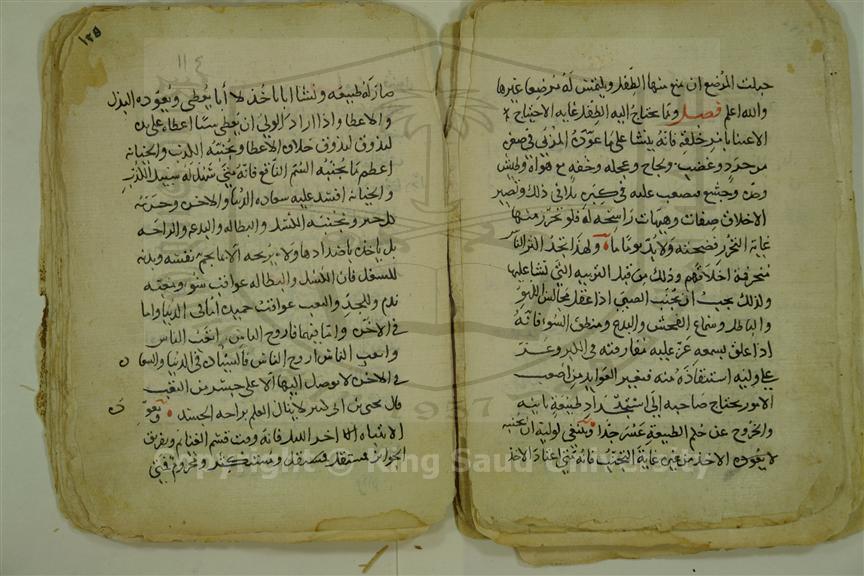 حبلت المرضع ان يمنع منها الطفل ويلتمس له مرضعا غيرها
والله اعلم فصل ومما يحتاج اليه الطفل غايه الاحتياج
الاعتنا بامر خلقه فانه ينشا على ما عوده المربي في صغره
من حرد وغضب ولجاج وعجله وخفه مع هواه وطيش
وحده وجشع فيصعب عليه في كبره تلافي ذلك وتصير
الاخلاق صفات وهيات راسخه له فلو تحرز منها
غاية التحرز فضحته ولا بد يوما ما ولهذا تجد اكثر الناس
منحرفه اخلاقهم وذلك من قبل التربيه التي نشا عليها
ولذلك يجب ان يجنب الصبي اذا عقل مجالس اللهو
والباطل وسماع الفحش والبدع ومنطق السوء فانه
اذا علق بسمعه عسر عليه مفارقته في الكبر وعز
على وليه استنقاذه منه فتغيير العوايد من اصعب
الامور يحتاج صاحبه الى استجداد طبيعة ثانيه
والخروج عن حكم الطبيعة عسر جدا وينبغي لوليه ان يجنبه
الاخذ من غيره غاية التجنب فانه متى اعتاد الاخذ
١٢٥
١١٤
صار له طبيعه ونشا بان ياخذ لا بان يعطي ويعوده البذل
والاعطا واذا اراد الولي ان يعطي شيا اعطاه على يده
ليذوق حلاوة الاعطا ويجنبه الكذب والخيانه
اعظم مما يجنبه السم الناقع فانه متى سهل له سبيل الكذب
والخيانه افسد عليه سعاده الدنيا والاخره وحرمه
كل خير ويجنبه الكسل والبطاله والدعه والراحه
بل ياخذه باضدادها ولا يريحه الا بما يجم نفسه وبدنه
للشغل فان الكسل والبطاله عواقب سوء ومغبة
ندم وللجد والتعب عواقب حميده اما في الدنيا واما
في الاخره واما فيهما فاروح الناس اتعب الناس
واتعب الناس اروح الناس فالسياده في الدنيا والسعاده
في الاخره لا يوصل اليها الا على جسر من التعب
قال يحيى بن ابي كثير لا ينال العلم براحه الجسد ويعوده
الانتباه اخر الليل فانه وقت قسم الغنايم وتفريق
الجوايز فمستقل ومستكثر ومحروم فمتى